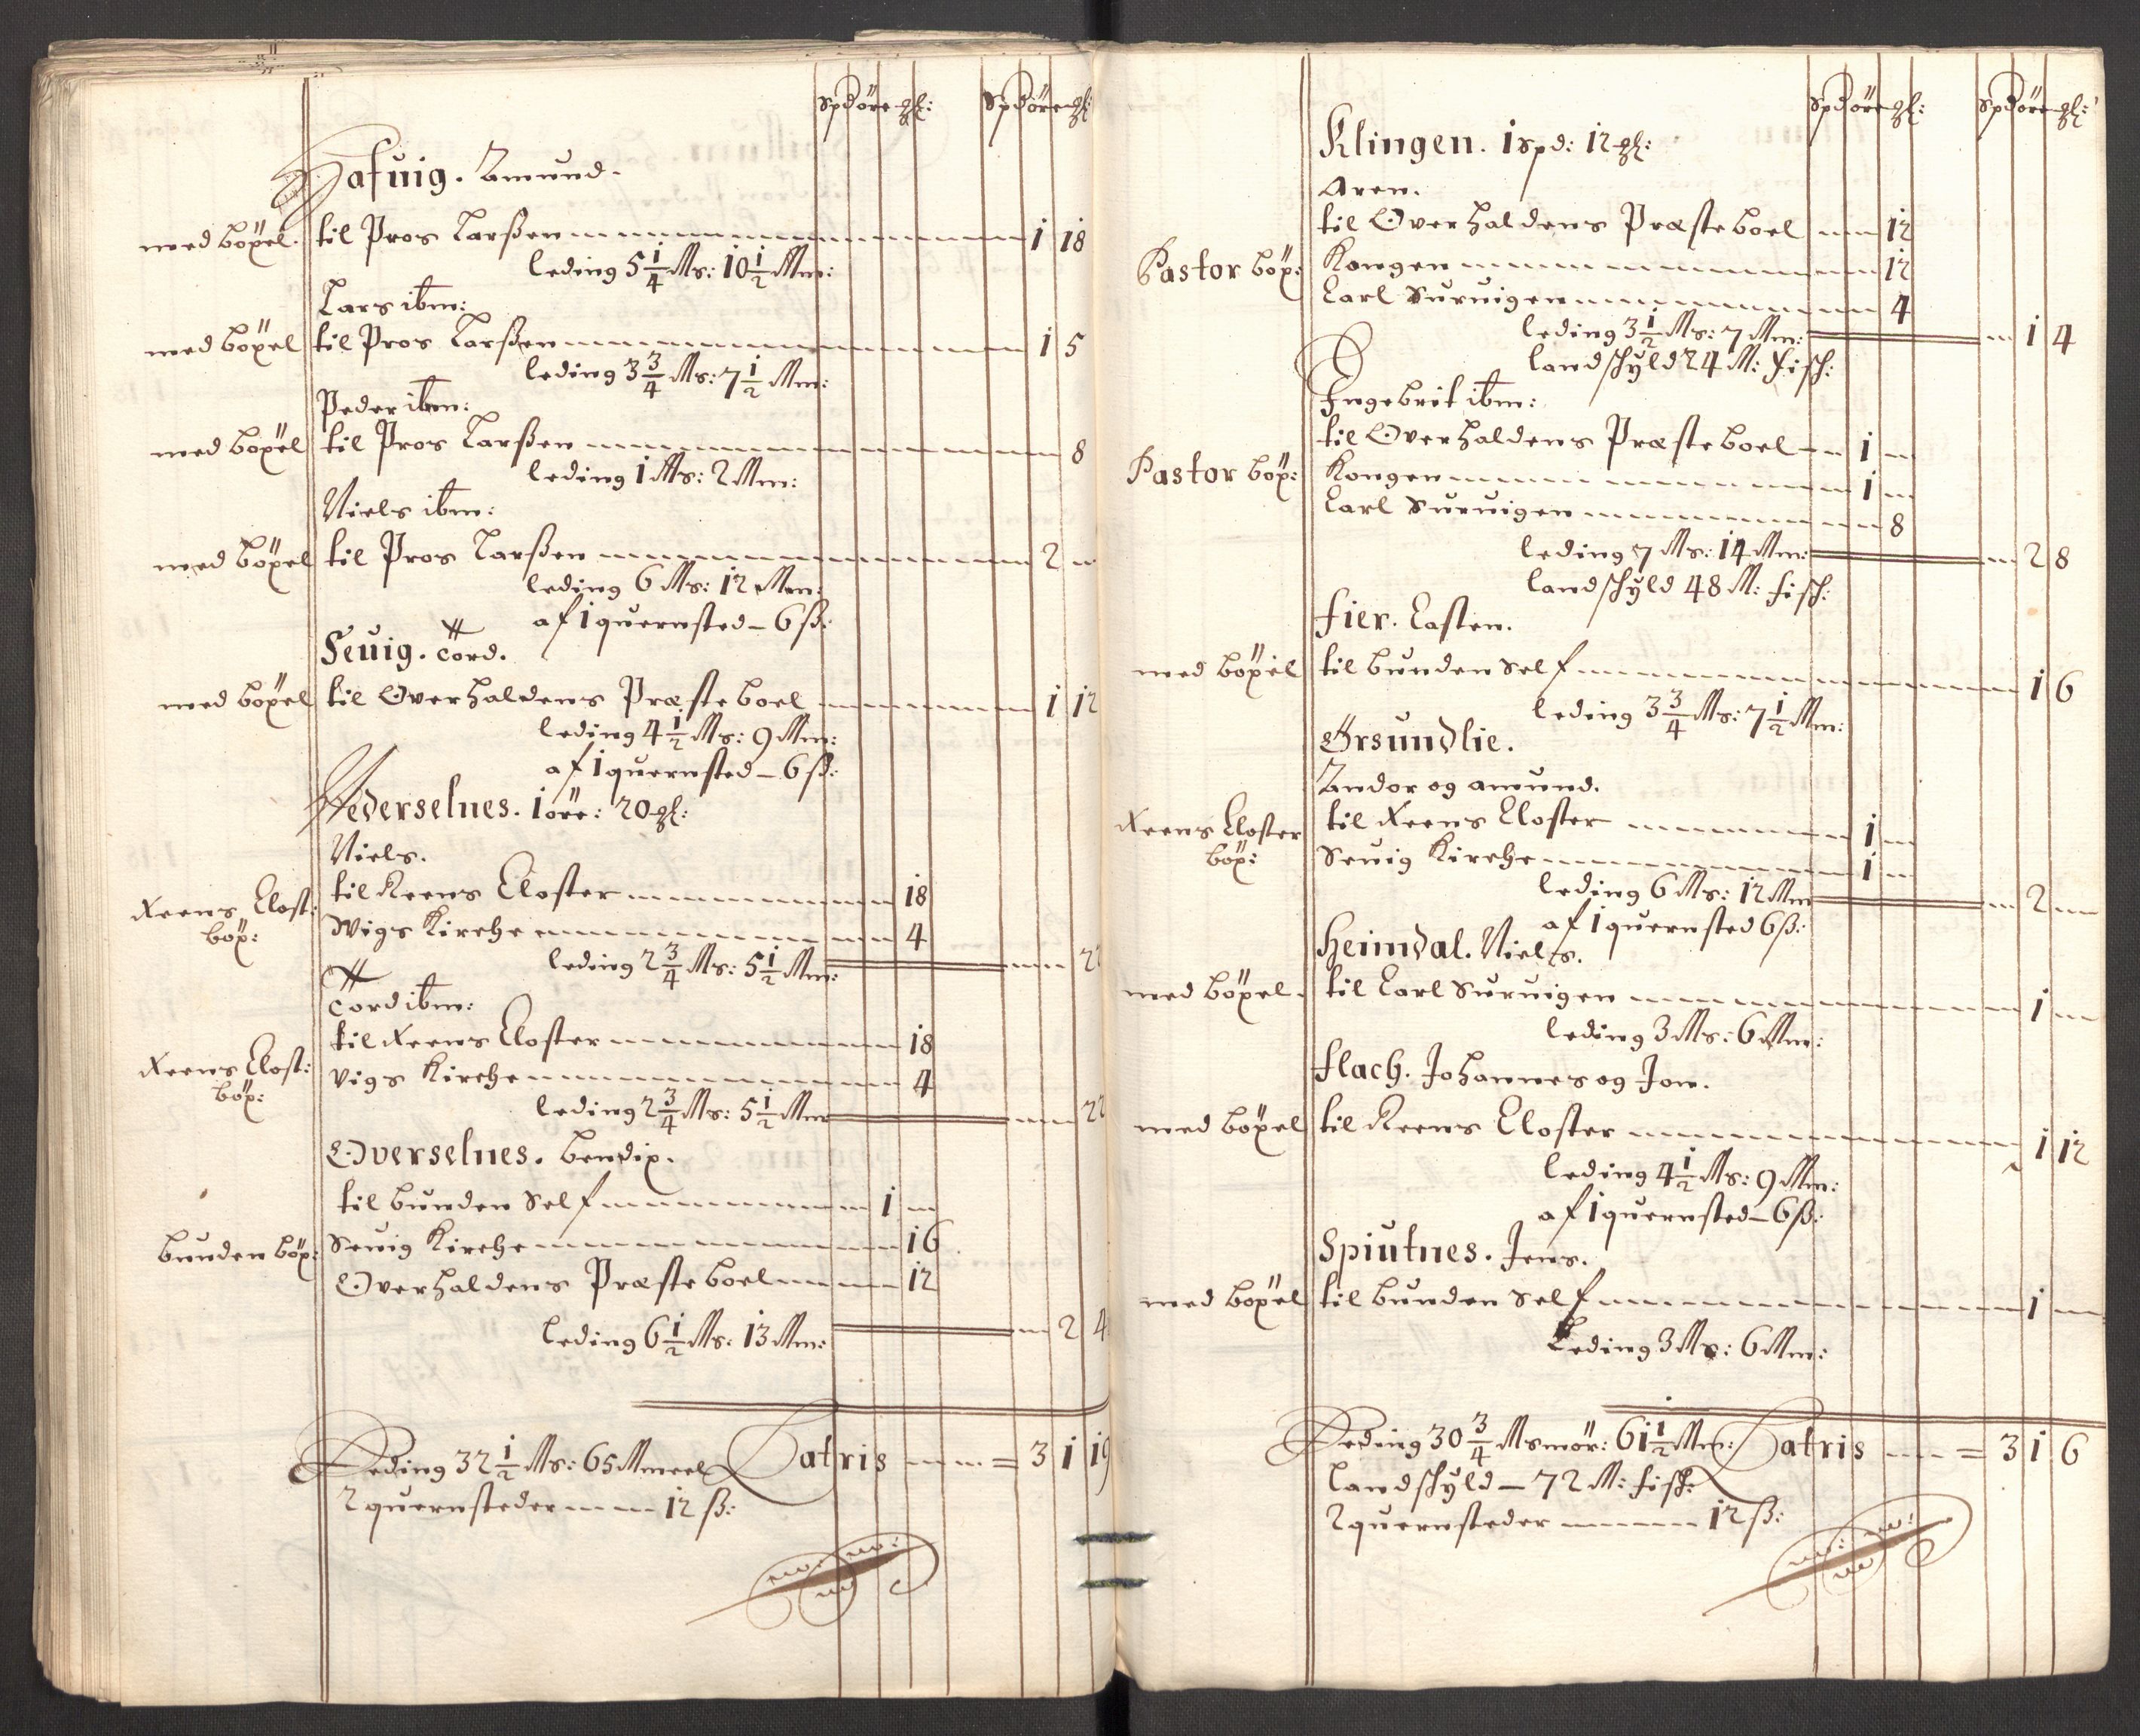 Spd öre gl: Spd öre gl:
Hafuig. Amund.
med böxel. til Pros Larßen 1 18
leding 5 1/4 Ms: 10 1/2 Mm:
Lars ibm:
med böxel til Pros Larßen 1 5
leding 3 3/4 Ms: 7 1/2 Mm:
Peder ibm:
med böxel til Pros Larßen 8
leding 1 Ms: 2 Mm:
Niels ibm:
med böxel til Pros Larßen 2 —
leding 6 Ms: 12 Mm:
af 1 quernsted — 6 ß:
Seuig. Tord.
med böxel til Overhaldens Præsteboel 1 12
leding 4 1/2 Ms: 9 Mm:
af 1 quernsted — 6 ß:
Nederselnes. 1 öre: 20 gl:
Niels.
Reens Clost: til Reens Closter 18
böx: Wigs Kirche 4
leding 2 3/4 Ms: 5 1/2 Mm: 22
Tord ibm:
til Reens Closter 18
Reens Clost: Vigs Kirche 4
böx:
leding 2 3/4 Ms: 5 1/2 Mm 22
Overselnes. Bendix.
til bunden Self 1 —
bunden böx: Seuig Kirche 16
Overhaldens Præsteboel 12
leding 6 1/2 Ms: 13 Mm: 2 4
Leding 32 1/2 Ms: 65 Mmeel Latris = 3 1 19
2 quernsteder 12 ß:
Spd öre gl: Spd öre gl:
Klingen. 1 spd: 12 gl:
Aren.
til Overhaldens Præsteboel 12
Pastor böx: Kongen 12
Carl Suruigen 4
leding 3 1/2 Ms: 7 Mm: 1 4
landschyld 24 M: fisch:
Ingebrit ibm:
til Overhaldens Præsteboel 1 —
Pastor böx: Kongen 1 —
Carl Suruigen 8
leding 7 Ms: 14 Mm: 2 8
landschyld 48 M: fisch:
Fier. Casten.
med böxel til bunden Self 1 6
leding 3 3/4 Ms: 7 1/2 Mm:
Örsundlie.
Andor og amund.
Reens Closter til Reens Closter 1 —
böx: Seuig Kirche 1 —
leding 6 Ms: 12 Mm 2 —
af 1 quernsted 6 ß:
Heimdal. Niels.
med böxel. til Carl Suruigen 1 —
leding 3 Ms: 6 Mm:
Flach. Johannes og Jon.
med böxel til Reens Closter 1 12
leding 4 1/2 Ms: 9 Mm:
af 1 quernsted — 6 ß:
Spiutnes. Jens.
med böxel til bunden Self 1 —
Leding 3 Ms: 6 Mm:
Leding 30 3/4 Msmör: 61 1/2 Mm: Latris = 3 1 6
Landschyld — 72 M: fisch:
2 quernsteder 12 ß: